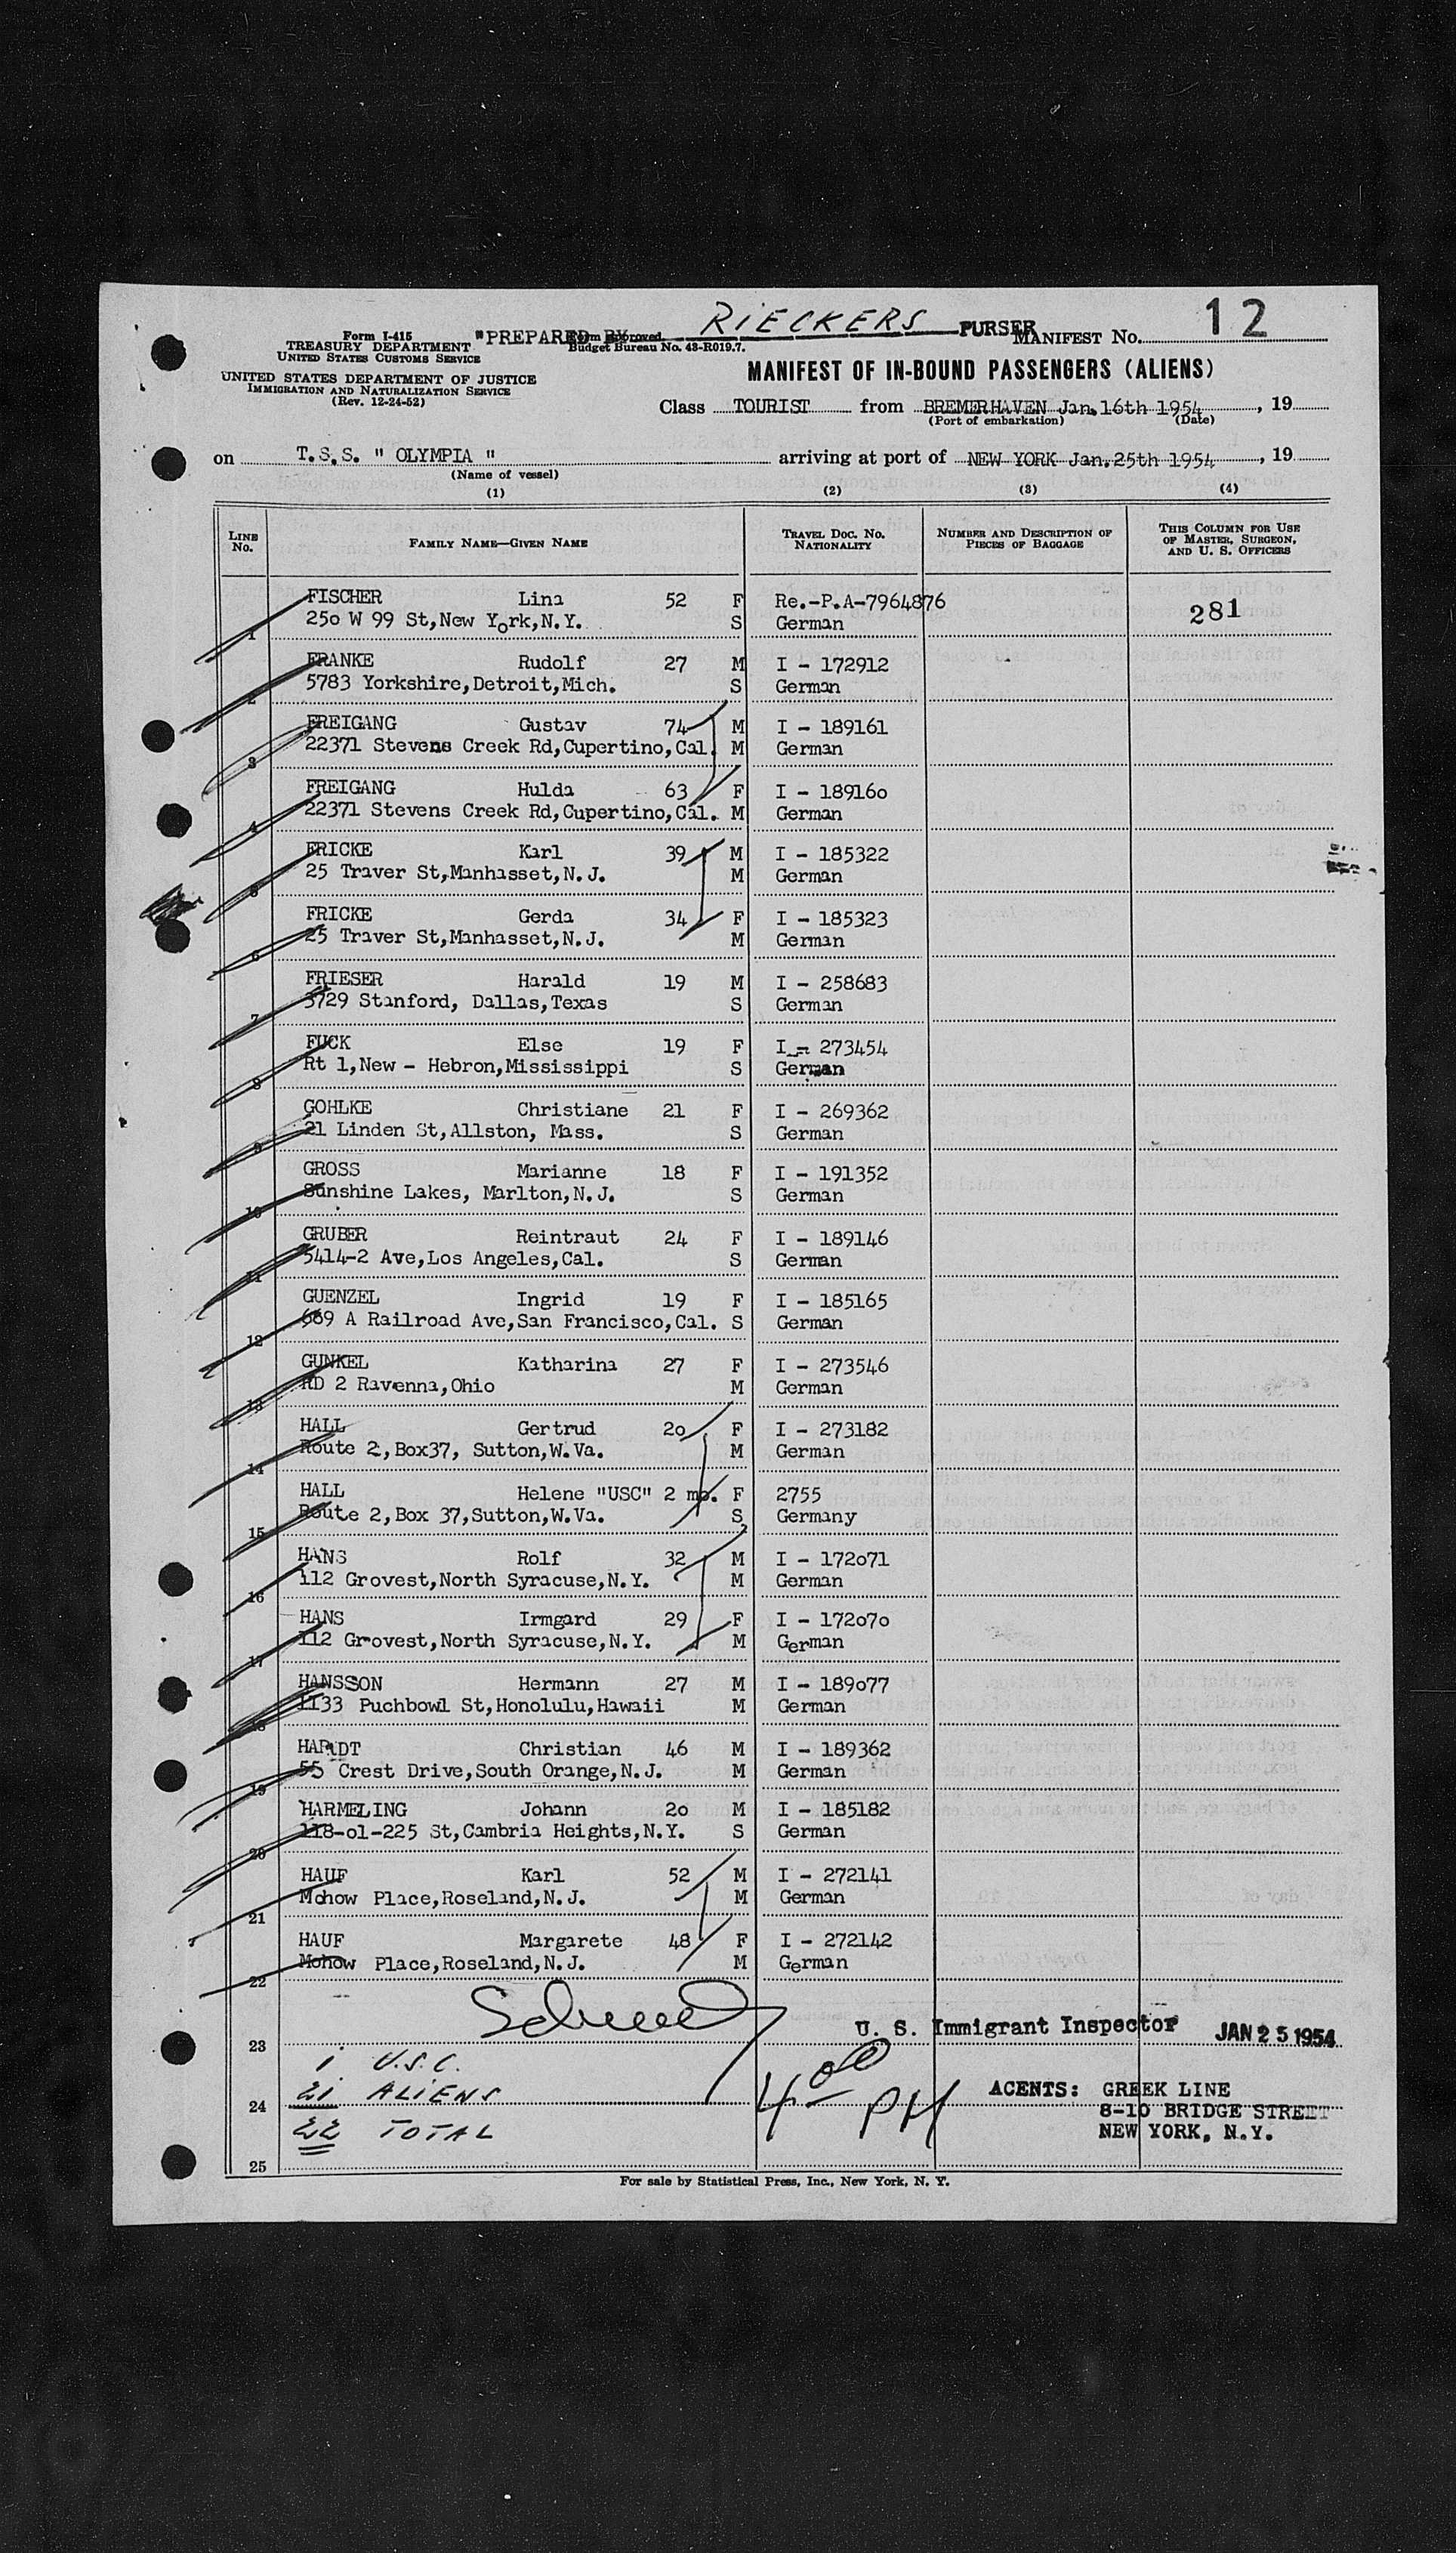 Form I-415
TREASURY DEPARTMENT
UNITED STATES CUSTOMS SERVICE
UNITED STATES DEPARTMENT OF JUSTICE
IMMIGRATION AND NATURALIZATION SERVICE
(Rev. 12-24-52)
"PREPARED BY RIECKERS PURSER
Form Approved.
Budget Bureau No. 43-R019.7.
MANIFEST No. 12
MANIFEST OF IN-BOUND PASSENGERS (ALIENS)
Class TOURIST from BREMERHAVEN Jan. 16th 1954, 19
(Port of embarkation) (Date)
on T.S.S. " OLYMPIA " arriving at port of NEW YORK Jan. 25th 1954, 19
(Name of vessel)
(1) (2) (3) (4)
LINE No. FAMILY NAME—GIVEN NAME TRAVEL DOC. No. NATIONALITY NUMBER AND DESCRIPTION OF PIECES OF BAGGAGE THIS COLUMN FOR USE OF MASTER, SURGEON, AND U. S. OFFICERS
FISCHER Lina 52 F Re.-P.A-7964876 281
1 250 W 99 St,New York,N.Y. S German
FRANKE Rudolf 27 M I - 172912
2 5783 Yorkshire,Detroit,Mich. S German
FREIGANG Gustav 74 M I - 189161
3 22371 Stevens Creek Rd,Cupertino,Cal. M German
FREIGANG Hulda 63 F I - 189160
4 22371 Stevens Creek Rd,Cupertino,Cal. M German
FRICKE Karl 39 M I - 185322
5 25 Traver St,Manhasset,N.J. M German
FRICKE Gerda 34 F I - 185323
6 25 Traver St,Manhasset,N.J. M German
FRIESER Harald 19 M I - 258683
7 3729 Stanford, Dallas,Texas S German
FUCK Else 19 F I - 273454
8 Rt 1,New - Hebron,Mississippi S German
GOHLKE Christiane 21 F I - 269362
9 21 Linden St,Allston, Mass. S German
GROSS Marianne 18 F I - 191352
10 Sunshine Lakes, Marlton,N.J. S German
GRUBER Reintraut 24 F I - 189146
11 5414-2 Ave,Los Angeles,Cal. S German
GUENZEL Ingrid 19 F I - 185165
12 669 A Railroad Ave,San Francisco,Cal. S German
GUNKEL Katharina 27 F I - 273546
13 RD 2 Ravenna,Ohio M German
HALL Gertrud 20 F I - 273182
14 Route 2,Box37, Sutton,W.Va. M German
HALL Helene "USC" 2 mo. F 2755
15 Route 2,Box 37,Sutton,W.Va. S Germany
HANS Rolf 32 M I - 172071
16 112 Grovest,North Syracuse,N.Y. M German
HANS Irmgard 29 F I - 172070
17 112 Grovest,North Syracuse,N.Y. M German
HANSSON Hermann 27 M I - 189077
18 1133 Puchbowl St,Honolulu,Hawaii M German
HARDT Christian 46 M I - 189362
19 55 Crest Drive,South Orange,N.J. M German
HARMELING Johann 20 M I - 185182
20 118-01-225 St,Cambria Heights,N.Y. S German
HAUF Karl 52 M I - 272141
21 Mohow Place,Roseland,N.J. M German
HAUF Margarete 48 F I - 272142
22 Mohow Place,Roseland,N.J. M German
23 U. S. Immigrant Inspector JAN 25 1954
1 U.S.C.
24 21 ALIENS
22 TOTAL
4 00 PM
AGENTS: GREEK LINE
8-10 BRIDGE STREET
NEW YORK, N.Y.
25
For sale by Statistical Press, Inc., New York, N. Y.